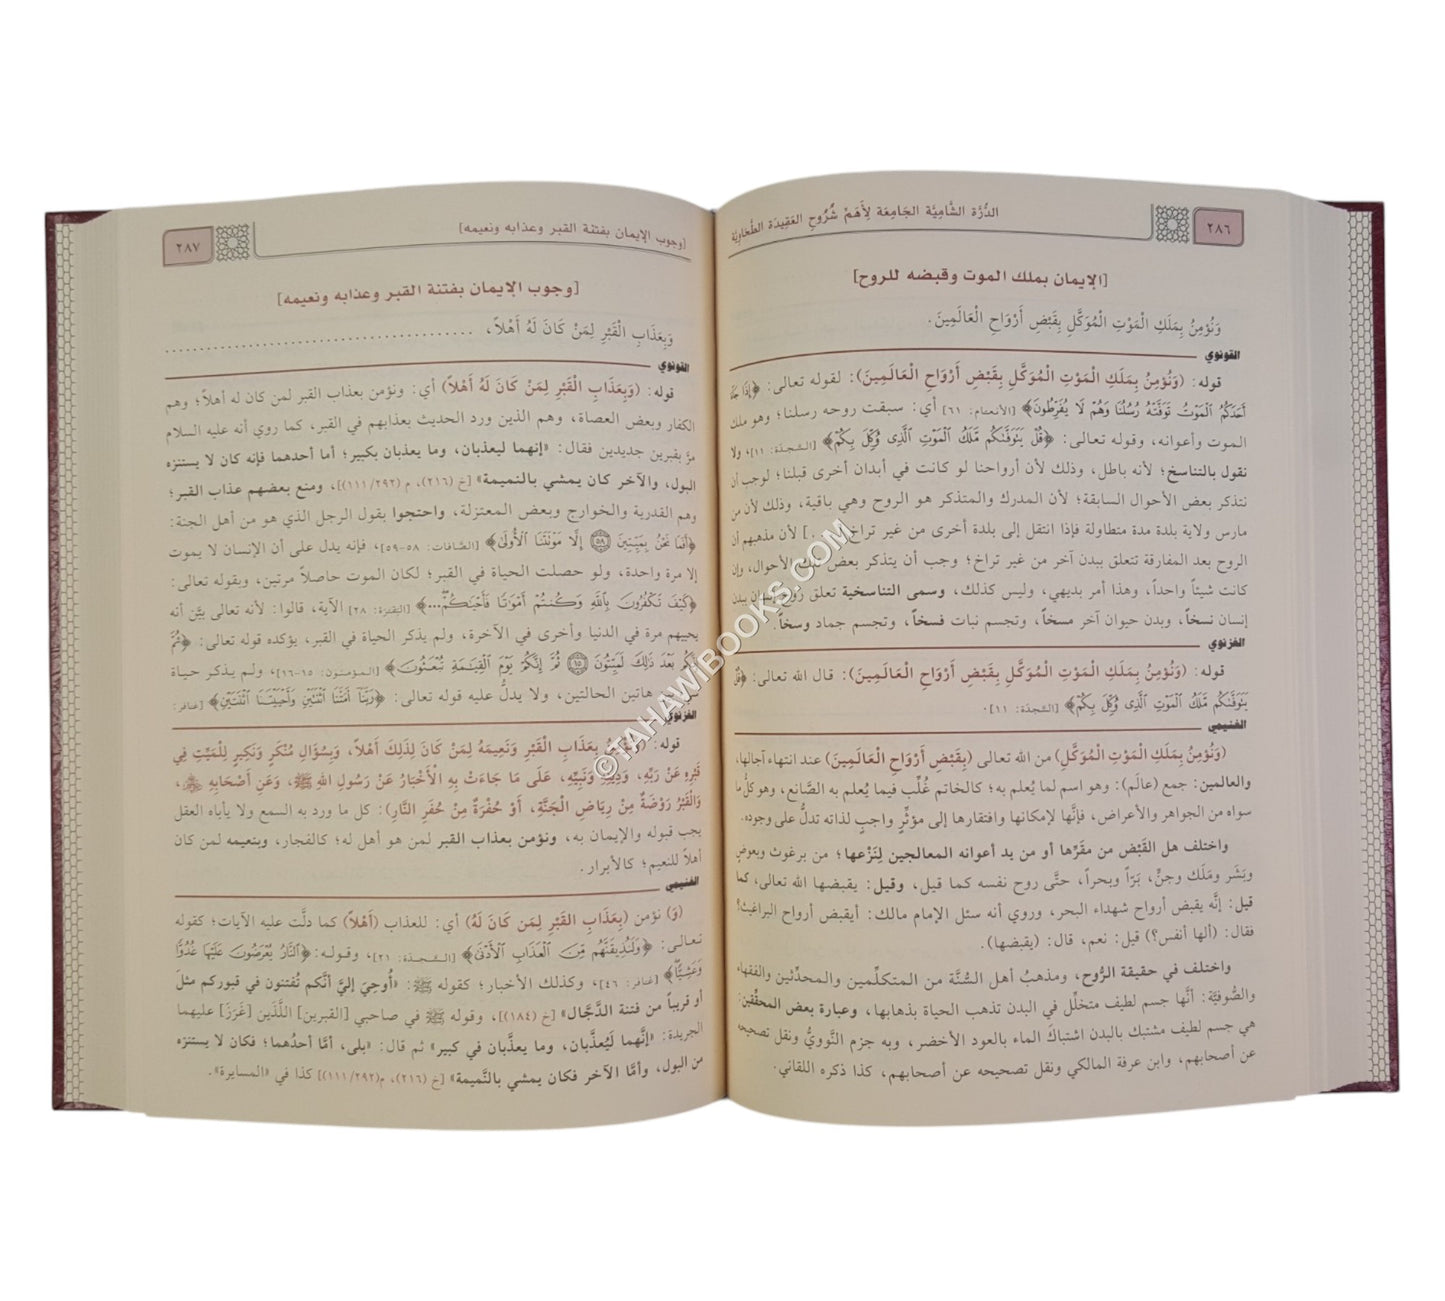 ٢٨٦
الدُّرَّة الشَّامِيَّة الجَامِعَة لِأَهَمِّ شُرُوحِ العَقِيدَة الطَّحَاوِيَّة
[الإيمان بملك الموت وقبضه للروح]
وَنُؤْمِنُ بِمَلَكِ الْمَوْتِ الْمُوَكَّلِ بِقَبْضِ أَرْوَاحِ الْعَالَمِينَ.
القونوي
قوله: (وَنُؤْمِنُ بِمَلَكِ الْمَوْتِ الْمُوَكَّلِ بِقَبْضِ أَرْوَاحِ الْعَالَمِينَ): لقوله تعالى: ﴿إِذَا جَآءَ
أَحَدَكُمُ ٱلْمَوْتُ تَوَفَّتْهُ رُسُلُنَا وَهُمْ لَا يُفَرِّطُونَ﴾ [الأنعام: ٦١] أي: سبقت روحه رسلنا؛ وهو ملك
الموت وأعوانه، وقوله تعالى: ﴿قُلْ يَتَوَفَّىٰكُم مَّلَكُ ٱلْمَوْتِ ٱلَّذِى وُكِّلَ بِكُمْ﴾ [السَّجدَة: ١١]، ولا
نقول بالتناسخ؛ لأنه باطل، وذلك لأن أرواحنا لو كانت في أبدان أخرى قبلنا؛ لوجب أن
نتذكر بعض الأحوال السابقة؛ لأن المدرك والمتذكر هو الروح وهي باقية، وذلك لأن من
مارس ولاية بلدة مدة متطاولة فإذا انتقل إلى بلدة أخرى من غير تراخ [. . .] لأن مذهبهم أن
الروح بعد المفارقة تتعلق ببدن آخر من غير تراخ؛ وجب أن يتذكر بعض تلك الأحوال، وإن
كانت شيئاً واحداً، وهذا أمر بديهي، وليس كذلك، وسمى التناسخية تعلق روح إنسان ببدن
إنسان نسخاً، وبدن حيوان آخر مسخاً، وتجسم نبات فسخاً، وتجسم جماد وسخاً.
الغزنوي
قوله: (وَنُؤْمِنُ بِمَلَكِ الْمَوْتِ الْمُوَكَّلِ بِقَبْضِ أَرْوَاحِ الْعَالَمِينَ): قال الله تعالى: ﴿قُلْ
يَتَوَفَّىٰكُم مَّلَكُ ٱلْمَوْتِ ٱلَّذِى وُكِّلَ بِكُمْ﴾ [السَّجدَة: ١١].
الغنيمي
(وَنُؤْمِنُ بِمَلَكِ الْمَوْتِ الْمُوَكَّلِ) من الله تعالى (بِقَبْضِ أَرْوَاحِ الْعَالَمِينَ) عند انتهاء آجالها،
والعالمين: جمع (عالَم): وهو اسم لما يُعلم به؛ كالخاتم غُلِّب فيما يُعلم به الصَّانع، وهو كلُّ ما
سواه من الجواهر والأعراض، فإنَّها لإمكانها وافتقارها إلى مؤثِّرٍ واجبٍ لذاته تدلُّ على وجوده.
واختلف هل القَبْض من مقَرِّها أو من يد أعوانه المعالجين لِنَزْعها؛ من برغوث وبعوض
وبَشَر ومَلَك وجنٍّ، بَرّاً وبحراً، حتَّى روح نفسه كما قيل، وقيل: يقبضها الله تعالى، كما
قيل: إنَّه يقبض أرواح شهداء البحر، وروي أنه سئل الإمام مالك: أيقبض أرواح البراغيث؟
فقال: (ألها أنفس؟) قيل: نعم، قال: (يقبضها).
واختلف في حقيقة الرُّوح، ومذهبُ أهل السُّنَّة من المتكلِّمين والمحدِّثين والفقهاء
والصُّوفيَّة: أنَّها جسم لطيف متخلِّل في البدن تذهب الحياة بذهابها، وعبارة بعض المحقِّقين:
هي جسم لطيف مشتبك بالبدن اشتباكَ الماء بالعود الأخضر، وبه جزم النَّوويُّ ونقل تصحيحه
عن أصحابهم، وابن عرفة المالكي ونقل تصحيحه عن أصحابهم، كذا ذكره اللقاني.
[وجوب الإيمان بفتنة القبر وعذابه ونعيمه]
٢٨٧
[وجوب الإيمان بفتنة القبر وعذابه ونعيمه]
وَبِعَذَابِ الْقَبْرِ لِمَنْ كَانَ لَهُ أَهْلاً، ......................................
القونوي
قوله: (وَبِعَذَابِ الْقَبْرِ لِمَنْ كَانَ لَهُ أَهْلاً) أي: ونؤمن بعذاب القبر لمن كان له أهلاً؛ وهم
الكفار وبعض العصاة، وهم الذين ورد الحديث بعذابهم في القبر، كما روي أنه عليه السلام
مرَّ بقبرين جديدين فقال: «إنهما ليعذبان، وما يعذبان بكبير؛ أما أحدهما فإنه كان لا يستنزه
البول، والآخر كان يمشي بالنميمة» [خ (٢١٦)، م (١١١/٢٩٢)]، ومنع بعضهم عذاب القبر؛
وهم القدرية والخوارج وبعض المعتزلة، واحتجوا بقول الرجل الذي هو من أهل الجنة:
﴿أَفَمَا نَحْنُ بِمَيِّتِينَ ۝٥٨ إِلَّا مَوْتَتَنَا ٱلْأُولَىٰ﴾ [الصَّافات: ٥٨-٥٩]، فإنه يدل على أن الإنسان لا يموت
إلا مرة واحدة، ولو حصلت الحياة في القبر؛ لكان الموت حاصلاً مرتين، وبقوله تعالى:
﴿كَيْفَ تَكْفُرُونَ بِٱللَّهِ وَكُنتُمْ أَمْوَٰتًا فَأَحْيَـٰكُمْ...﴾ [البَقَرَة: ٢٨] الآية، قالوا: لأنه تعالى بيَّن أنه
يحييهم مرة في الدنيا وأخرى في الآخرة، ولم يذكر الحياة في القبر، يؤكده قوله تعالى: ﴿ثُمَّ
إِنَّكُم بَعْدَ ذَٰلِكَ لَمَيِّتُونَ ۝١٥ ثُمَّ إِنَّكُمْ يَوْمَ ٱلْقِيَـٰمَةِ تُبْعَثُونَ﴾ [المؤمنون: ١٥-١٦]، ولم يذكر حياة
هاتين الحالتين، ولا يدلُّ عليه قوله تعالى: ﴿رَبَّنَآ أَمَتَّنَا ٱثْنَتَيْنِ وَأَحْيَيْتَنَا ٱثْنَتَيْنِ﴾ [غافر:
الغزنوي
قوله: (وَنُؤْمِنُ بِعَذَابِ الْقَبْرِ وَنَعِيمَهُ لِمَنْ كَانَ لِذَلِكَ أَهْلاً، وَبِسُؤَالِ مُنْكَرٍ وَنَكِيرٍ لِلْمَيِّتِ فِي
قَبْرِهِ عَنْ رَبِّهِ، وَدِينِهِ وَنَبِيِّهِ، عَلَى مَا جَاءَتْ بِهِ الْأَخْبَارُ عَنْ رَسُولِ اللهِ ﷺ، وَعَنِ أَصْحَابِهِ ﷺ،
وَالْقَبْرُ رَوْضَةٌ مِنْ رِيَاضِ الْجَنَّةِ، أَوْ حُفْرَةٌ مِنْ حُفَرِ النَّارِ): كل ما ورد به السمع ولا يأباه العقل
يجب قبوله والإيمان به، ونؤمن بعذاب القبر لمن هو أهل له؛ كالفجار، وبنعيمه لمن كان
أهلاً للنعيم؛ كالأبرار.
الغنيمي
(وَ) نؤمن (بِعَذَابِ القَبْرِ لِمَن كَانَ لَهُ) أي: للعذاب (أَهْلاً) كما دلَّت عليه الآيات؛ كقوله
تعالى: ﴿وَلَنُذِيقَنَّهُم مِّنَ ٱلْعَذَابِ ٱلْأَدْنَىٰ﴾ [السَّجدَة: ٢١]، وقوله: ﴿ٱلنَّارُ يُعْرَضُونَ عَلَيْهَا غُدُوًّا
وَعَشِيًّا﴾ [غافر: ٤٦]، وكذلك الأخبار؛ كقوله ﷺ: «أُوحِيَ إليَّ أنَّكم تُفتنون في قبوركم مثلَ
أو قريباً من فتنة الدَّجَّال» [خ (١٨٤)]، وقوله ﷺ في صاحبي [القبرين] اللَّذَين [غَرَزَ] عليهما
الجريدة: «إنَّهما لَيُعذَّبان، وما يعذَّبان في كبير» ثم قال: «بلى، أمَّا أحدُهما؛ فكان لا يستنزه
من البول، وأمَّا الآخر فكان يمشي بالنَّميمة» [خ (٢١٦)، م(١١١/٢٩٢)] كذا في «المسايرة».
©TAHAWIBOOKS.COM